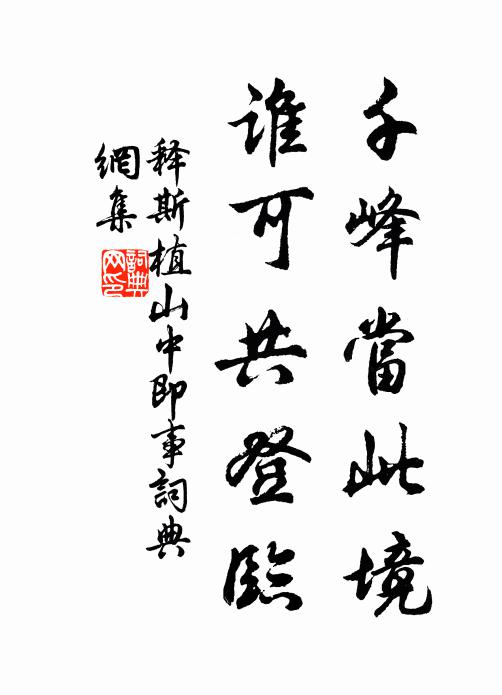 千峰當此境
誰可共登臨
释斯植山中即事詞典
網集
詞典
网印